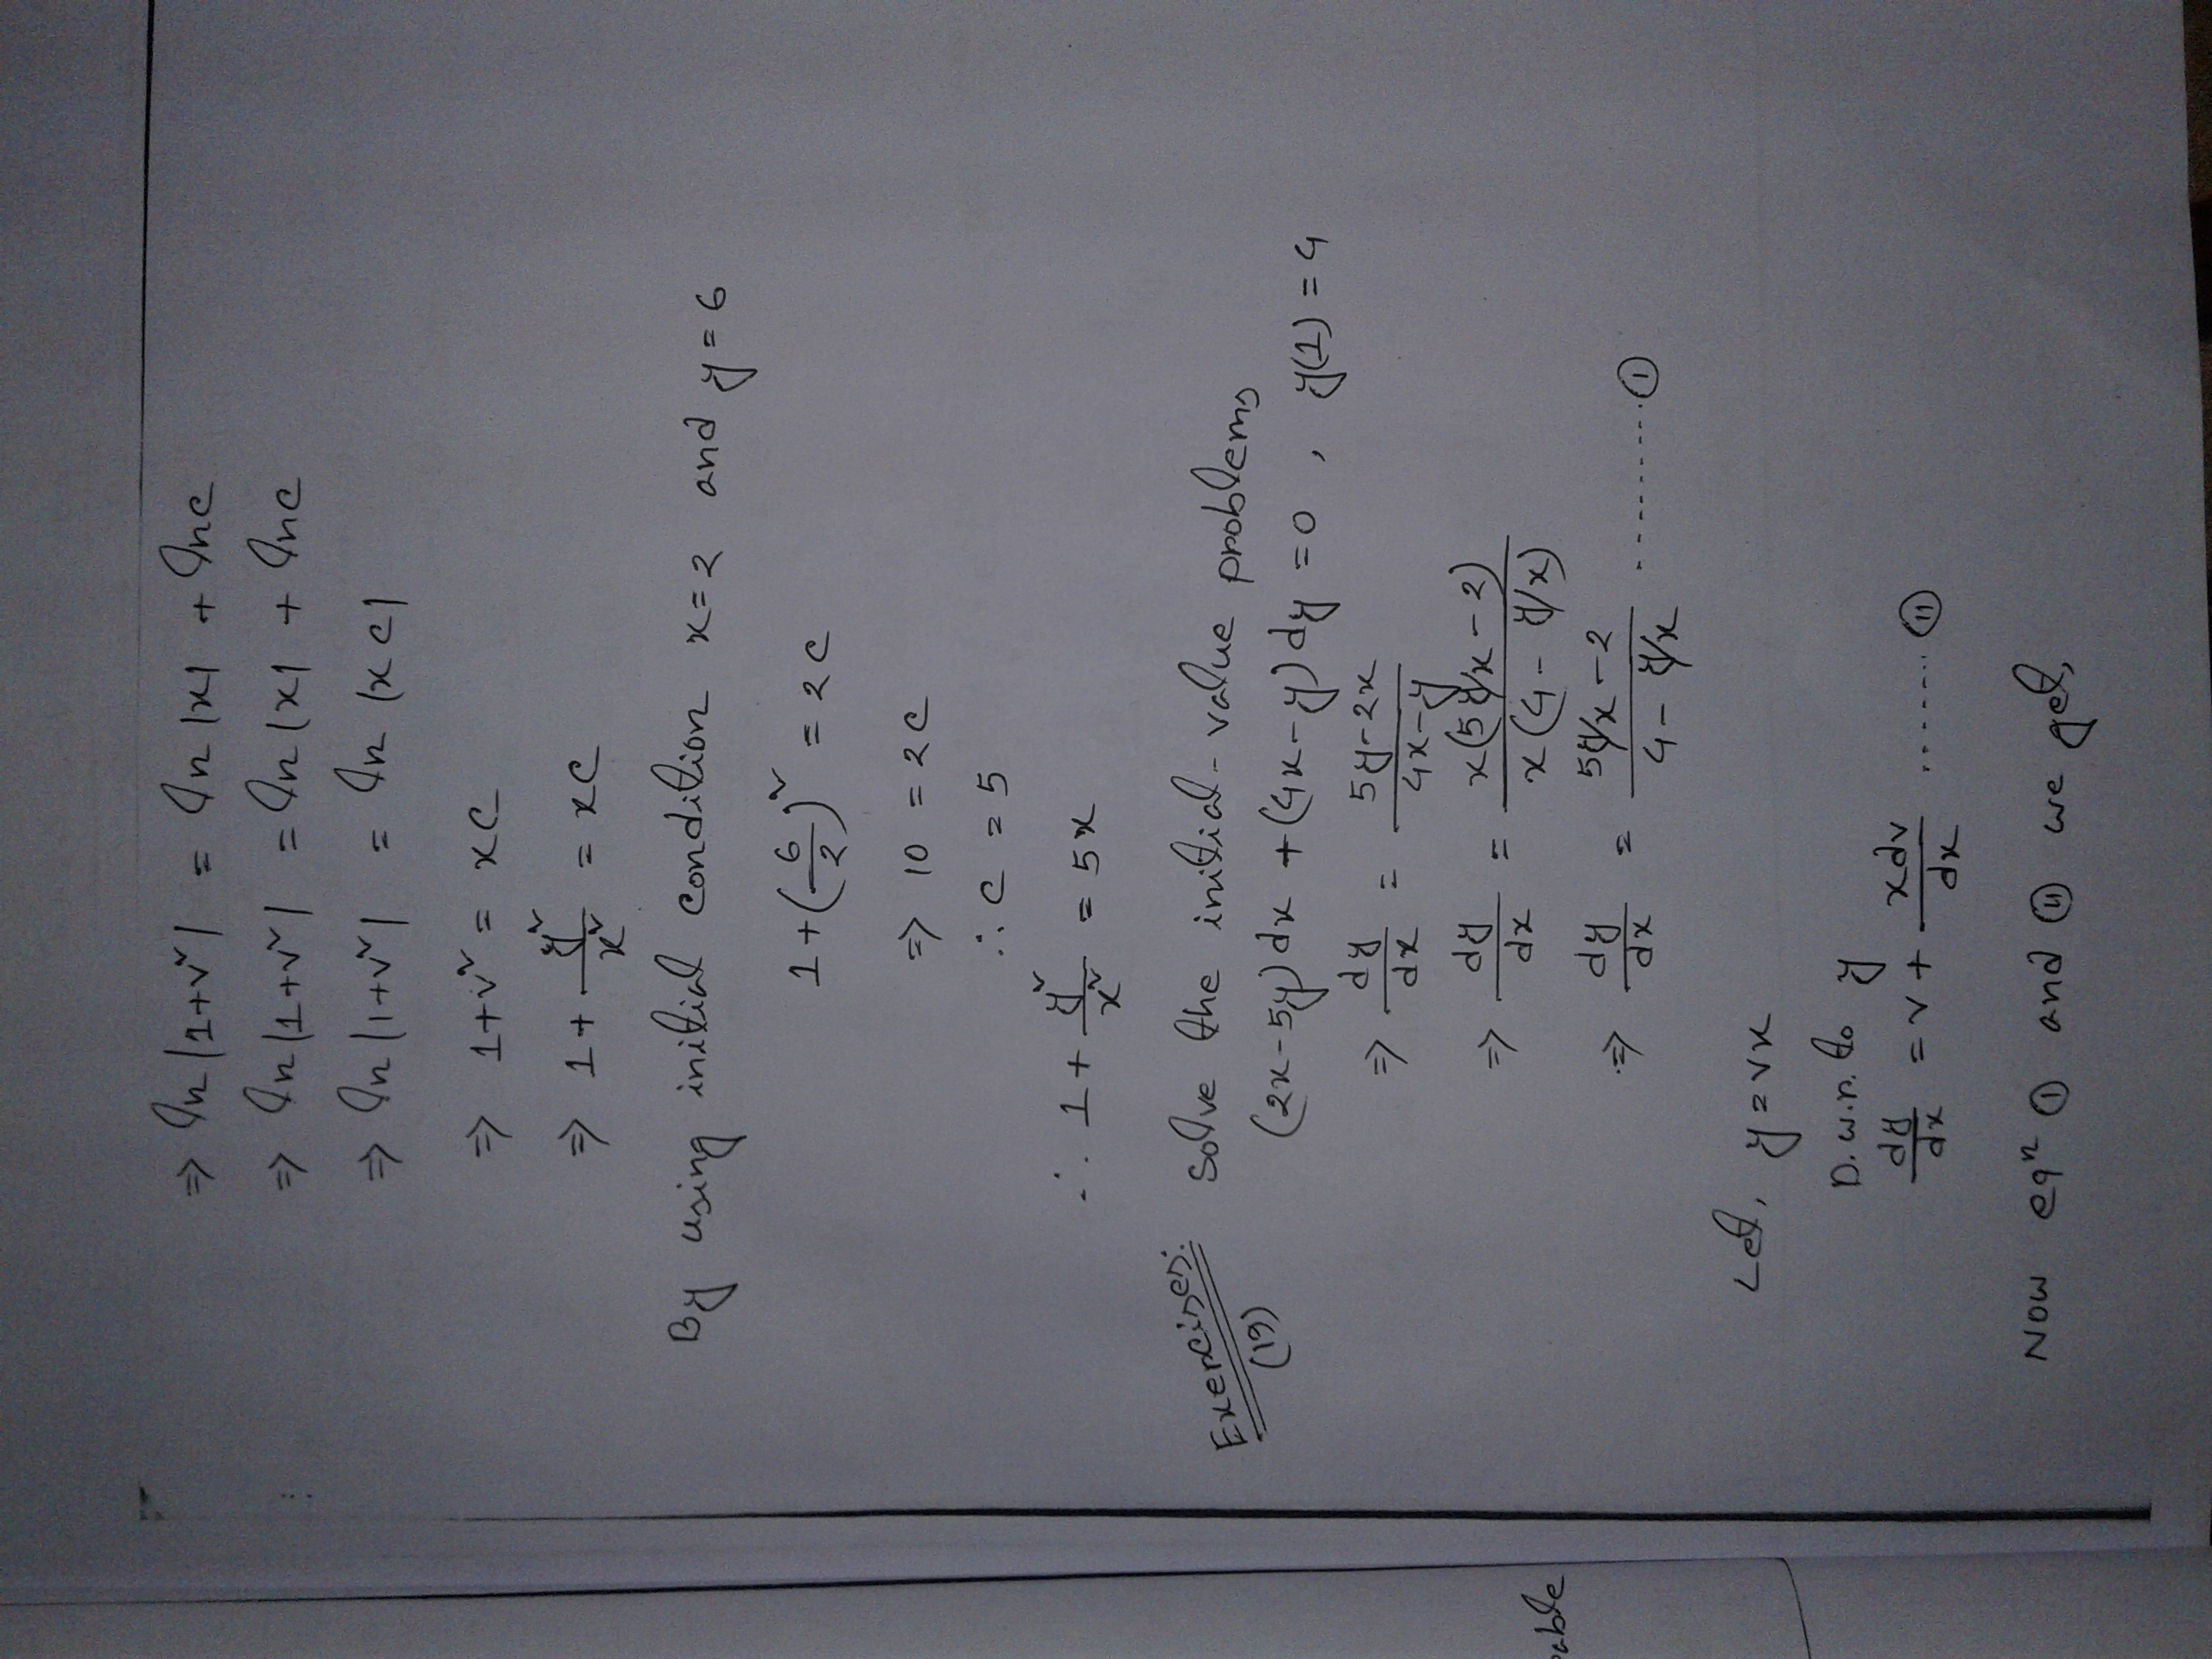 ⇒ ln |1+v²| = ln |x| + lnc
⇒ ln |1+v²| = ln |x| + lnc
⇒ ln |1+v²| = ln |x c|
⇒ 1+v² = xc
⇒ 1 + y²/x² = xc
By using initial condition x=2 and y=6
1 + (6/2)² = 2c
⇒ 10 = 2c
∴ c = 5
∴ 1 + y²/x² = 5x
Exercises: Solve the initial-value problems
(19) (2x-5y)dx + (4x-y)dy = 0 , y(1) = 4
⇒ dy/dx = (5y-2x)/(4x-y)
⇒ dy/dx = x(5y/x - 2)/x(4 - y/x)
⇒ dy/dx = (5y/x - 2)/(4 - y/x) .......... ①
Let, y = vx
D. w. r. to y
dy/dx = v + xdv/dx ....... ⑪
Now eqⁿ ① and ⑪ we get,
able